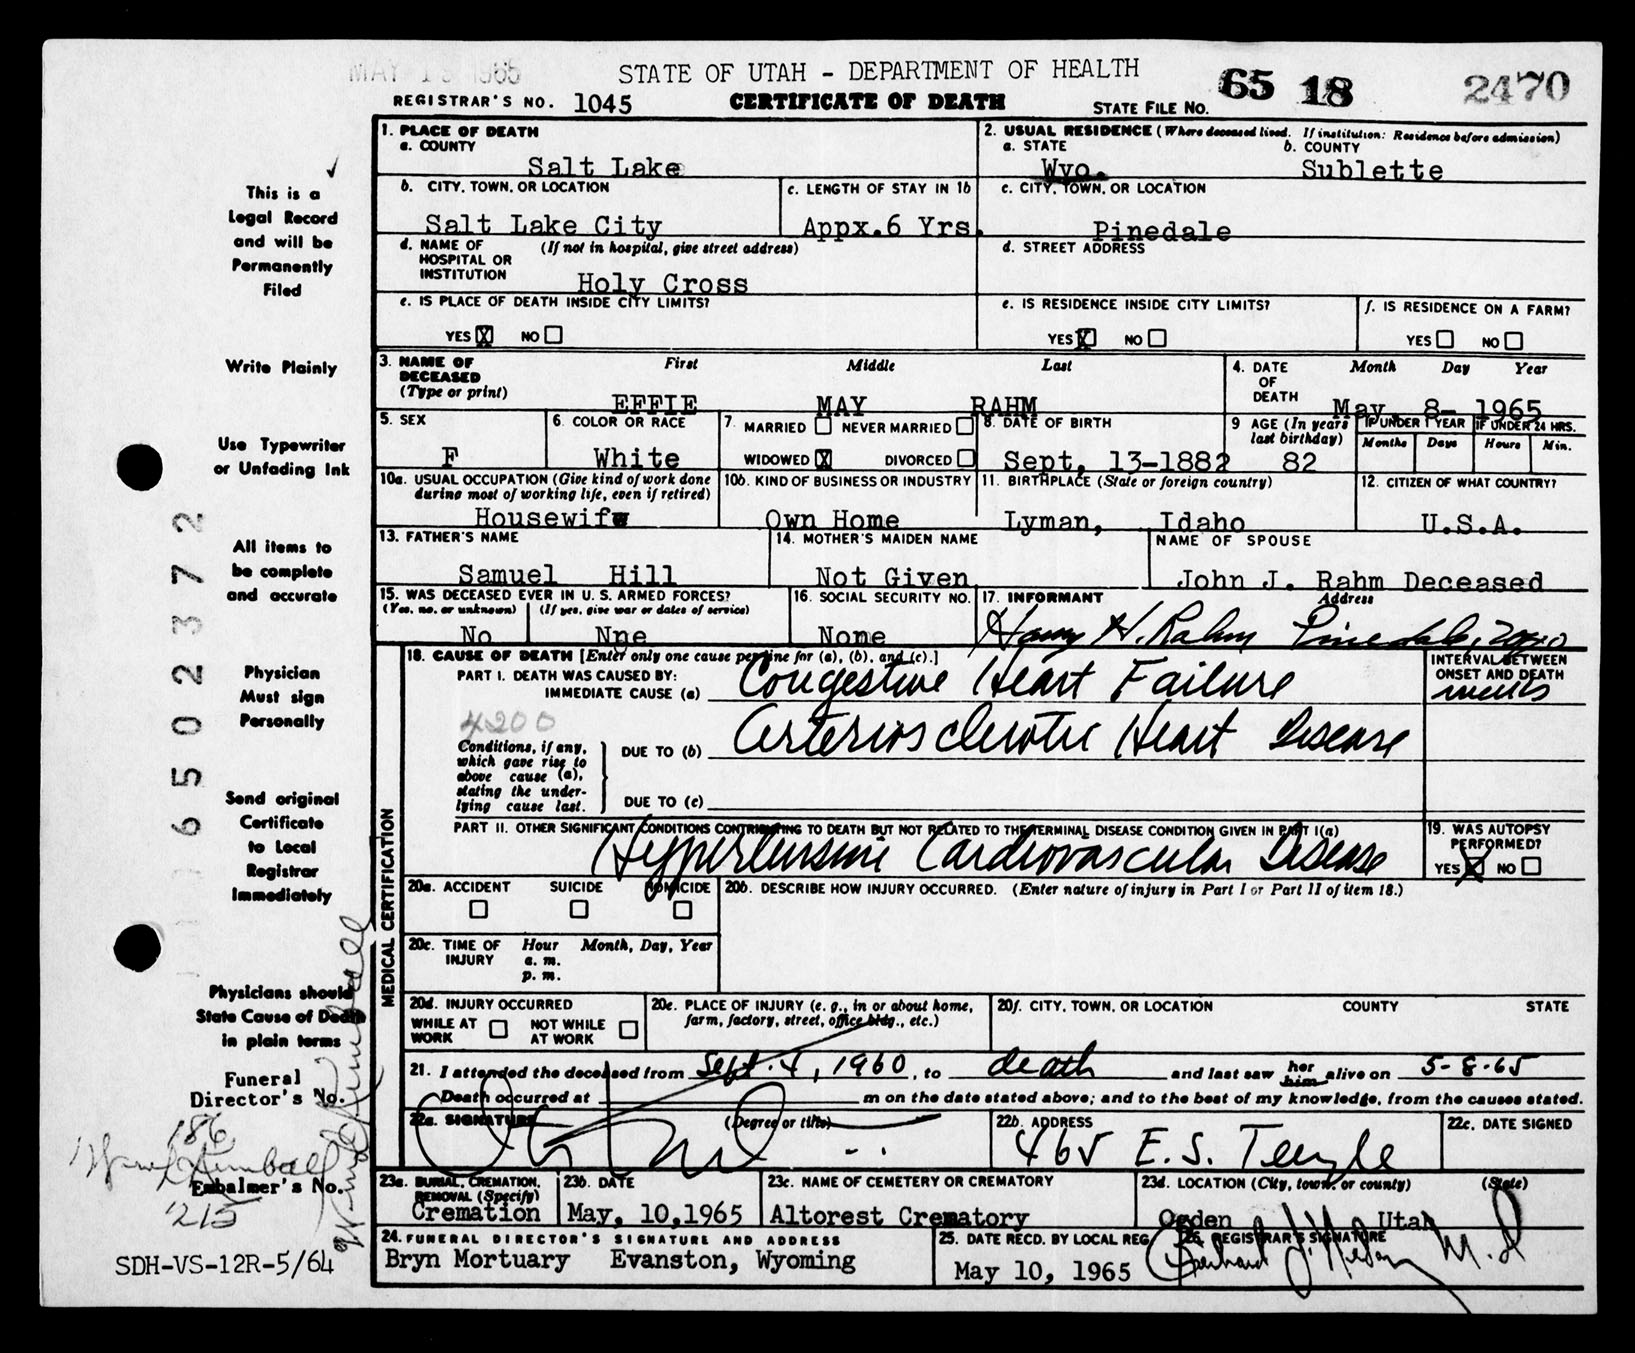 MAY 1 1965
STATE OF UTAH - DEPARTMENT OF HEALTH
65 18 2470
REGISTRAR'S NO. 1045 CERTIFICATE OF DEATH STATE FILE NO.
1. PLACE OF DEATH
a. COUNTY
Salt Lake
2. USUAL RESIDENCE (Where deceased lived. If institution: Residence before admission)
a. STATE b. COUNTY
Wyo. Sublette
b. CITY, TOWN, OR LOCATION c. LENGTH OF STAY IN 1b
Salt Lake City Appx.6 Yrs.
c. CITY, TOWN, OR LOCATION
Pinedale
d. NAME OF HOSPITAL OR INSTITUTION (If not in hospital, give street address)
Holy Cross
d. STREET ADDRESS
e. IS PLACE OF DEATH INSIDE CITY LIMITS?
YES X NO
e. IS RESIDENCE INSIDE CITY LIMITS?
YES X NO
f. IS RESIDENCE ON A FARM?
YES NO
3. NAME OF DECEASED (Type or print) First Middle Last
EFFIE MAY RAHM
4. DATE OF DEATH Month Day Year
May, 8- 1965
5. SEX
F
6. COLOR OR RACE
White
7. MARRIED NEVER MARRIED
WIDOWED X DIVORCED
8. DATE OF BIRTH
Sept, 13-1882
9 AGE (In years last birthday)
82
IF UNDER 1 YEAR IF UNDER 24 HRS.
Months Days Hours Min.
10a. USUAL OCCUPATION (Give kind of work done during most of working life, even if retired)
Housewife
10b. KIND OF BUSINESS OR INDUSTRY
Own Home
11. BIRTHPLACE (State or foreign country)
Lyman, Idaho
12. CITIZEN OF WHAT COUNTRY?
U.S.A.
13. FATHER'S NAME
Samuel Hill
14. MOTHER'S MAIDEN NAME
Not Given
NAME OF SPOUSE
John J. Rahm Deceased
15. WAS DECEASED EVER IN U. S. ARMED FORCES?
(Yes, no, or unknown) (If yes, give war or dates of service)
No Nne
16. SOCIAL SECURITY NO.
None
17. INFORMANT Address
Harry H. Rahm Pinedale,
18. CAUSE OF DEATH [Enter only one cause per line for (a), (b), and (c).]
PART I. DEATH WAS CAUSED BY:
IMMEDIATE CAUSE (a) Congestive Heart Failure
INTERVAL BETWEEN ONSET AND DEATH
4200
Conditions, if any, which gave rise to above cause (a), stating the underlying cause last.
DUE TO (b) Arteriosclerotic Heart Disease
DUE TO (c)
PART II. OTHER SIGNIFICANT CONDITIONS CONTRIBUTING TO DEATH BUT NOT RELATED TO THE TERMINAL DISEASE CONDITION GIVEN IN PART I(a)
Hypertensive Cardiovascular Disease
19. WAS AUTOPSY PERFORMED?
YES X NO
MEDICAL CERTIFICATION
20a. ACCIDENT SUICIDE HOMICIDE
20b. DESCRIBE HOW INJURY OCCURRED. (Enter nature of injury in Part I or Part II of item 18.)
20c. TIME OF INJURY Hour Month, Day, Year
a. m.
p. m.
20d. INJURY OCCURRED
WHILE AT WORK NOT WHILE AT WORK
20e. PLACE OF INJURY (e. g., in or about home, farm, factory, street, office bldg., etc.)
20f. CITY, TOWN, OR LOCATION COUNTY STATE
21. I attended the deceased from Sept. 4, 1960, to death and last saw her him alive on 5-8-65
Death occurred at m on the date stated above; and to the best of my knowledge, from the causes stated.
22a. SIGNATURE (Degree or title)
22b. ADDRESS
465 E. S. Temple
22c. DATE SIGNED
23a. BURIAL, CREMATION, REMOVAL (Specify)
Cremation
23b. DATE
May, 10,1965
23c. NAME OF CEMETERY OR CREMATORY
Altorest Crematory
23d. LOCATION (City, town, or county) (State)
Ogden Utah
24. FUNERAL DIRECTOR'S SIGNATURE AND ADDRESS
Bryn Mortuary Evanston, Wyoming
25. DATE RECD. BY LOCAL REG.
May 10, 1965
26. REGISTRAR'S SIGNATURE
M. D
This is a
Legal Record
and will be
Permanently
Filed
Write Plainly
Use Typewriter
or Unfading Ink
All items to
be complete
and accurate
Physician
Must sign
Personally
Send original
Certificate
to Local
Registrar
Immediately
Physicians should
State Cause of Death
in plain terms
Funeral
Director's No.
186
Embalmer's No.
215
SDH-VS-12R-5/64
6502372